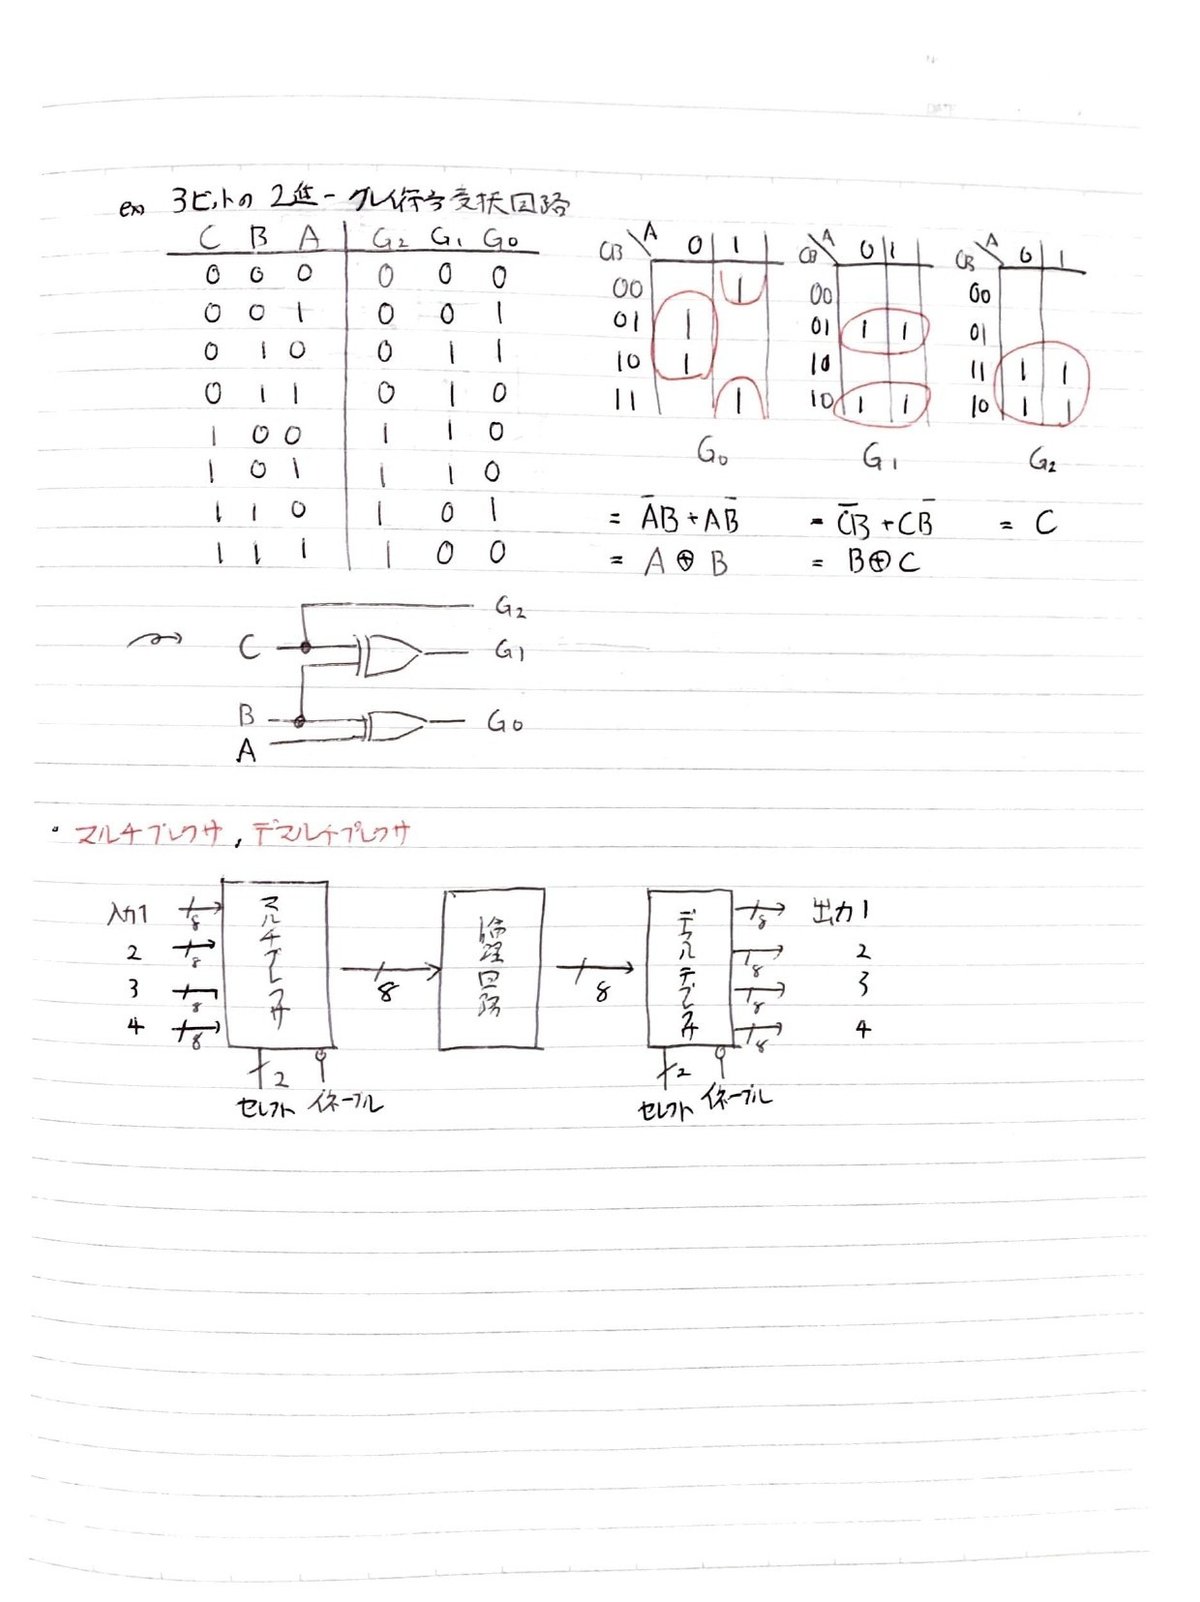 ex 3ビットの2進-グレイ符号変換回路
C B A G₂ G₁ G₀
0 0 0 0 0 0
0 0 1 0 0 1
0 1 0 0 1 1
0 1 1 0 1 0
1 0 0 1 1 0
1 0 1 1 1 0
1 1 0 1 0 1
1 1 1 1 0 0
CB A 0 1
00 1
01 1
10 1
11 1
G₀
= A̅B + AB̅
= A ⊕ B
CB A 0 1
00
01 1 1
10
10 1 1
G₁
= C̅B + CB̅
= B⊕C
CB A 0 1
00
01
11 1 1
10 1 1
G₂
= C
G₂
C G₁
B G₀
A
・マルチプレクサ, デマルチプレクサ
入力1 8 マルチプレクサ 8 論理回路 8 デマルチプレクサ 8 出力1
2 8 8 2
3 8 8 3
4 8 8 4
2 2
セレクト イネーブル セレクト イネーブル